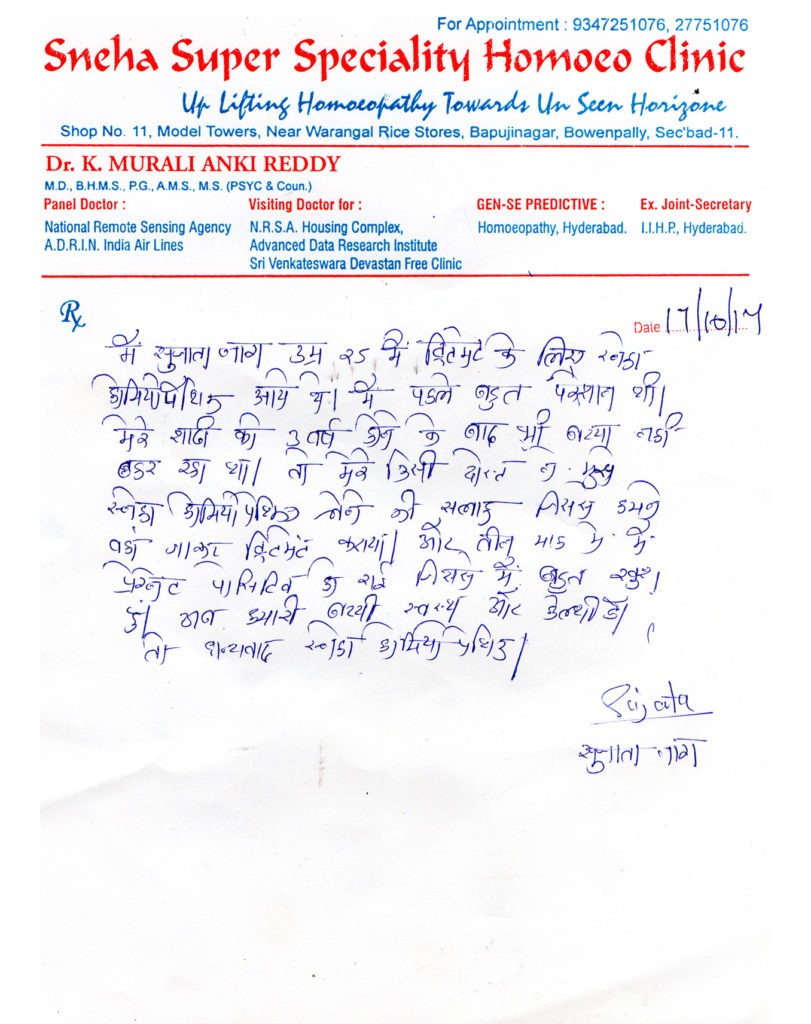 For Appointment : 9347251076, 27751076
Sneha Super Speciality Homoeo Clinic
Up Lifting Homoeopathy Towards Un Seen Horizone
Shop No. 11, Model Towers, Near Warangal Rice Stores, Bapujinagar, Bowenpally, Sec'bad-11.
Dr. K. MURALI ANKI REDDY
M.D., B.H.M.S., P.G., A.M.S., M.S. (PSYC & Coun.)
Panel Doctor : Visiting Doctor for : GEN-SE PREDICTIVE : Ex. Joint-Secretary
National Remote Sensing Agency N.R.S.A. Housing Complex, Homoeopathy, Hyderabad. I.I.H.P., Hyderabad.
A.D.R.I.N. India Air Lines Advanced Data Research Institute
Sri Venkateswara Devastan Free Clinic
Rx
Date 17/10/17
मैं सुजाता नाग उम्र २५ में ट्रिटमेंट के लिए स्नेहा
होमियोपैथिक आये थे। मैं पहले बहुत परेशान थी।
मेरे शादी को ३ वर्ष होने के बाद भी बच्चा नही
ठहर रहा था। तो मेरे किसी दोस्त ने मुझे
स्नेहा होमियोपैथिक लेने की सलाह जिससे हमने
वहां जाकर ट्रिटमेंट कराया। और तीन माह में मैं
प्रेग्नेंट पासिटिव हो गई जिससे मैं बहुत खुश
हूं। अब हमारी बच्ची स्वस्थ और हेल्थी है।
तो धन्यवाद स्नेहा होमियोपैथिक।
Sujata
सुजाता नाग